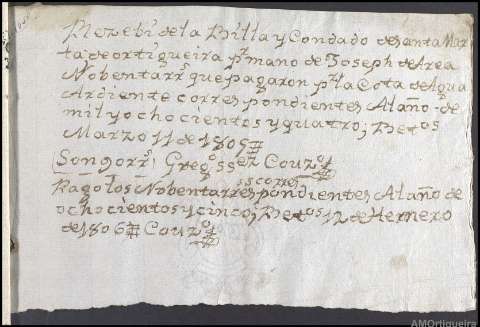 Rezebi de la Billa y Condado de Santa Mar
ta de ortigueira pr mano de Joseph de Area
Nobenta rrs que pagaron pr la Cota de Agua
Ardiente correspondiente Al año de
mil y ochocientos y quatro; Betos
Marzo 11 de 1805
Son 90 rrs Gregº Couzo
Pago los Nobenta rrs correspondientes Al año de
ochocientos y cinco, Betos 12 de Hernero
de 1806 Couzo
AMOrtigueira